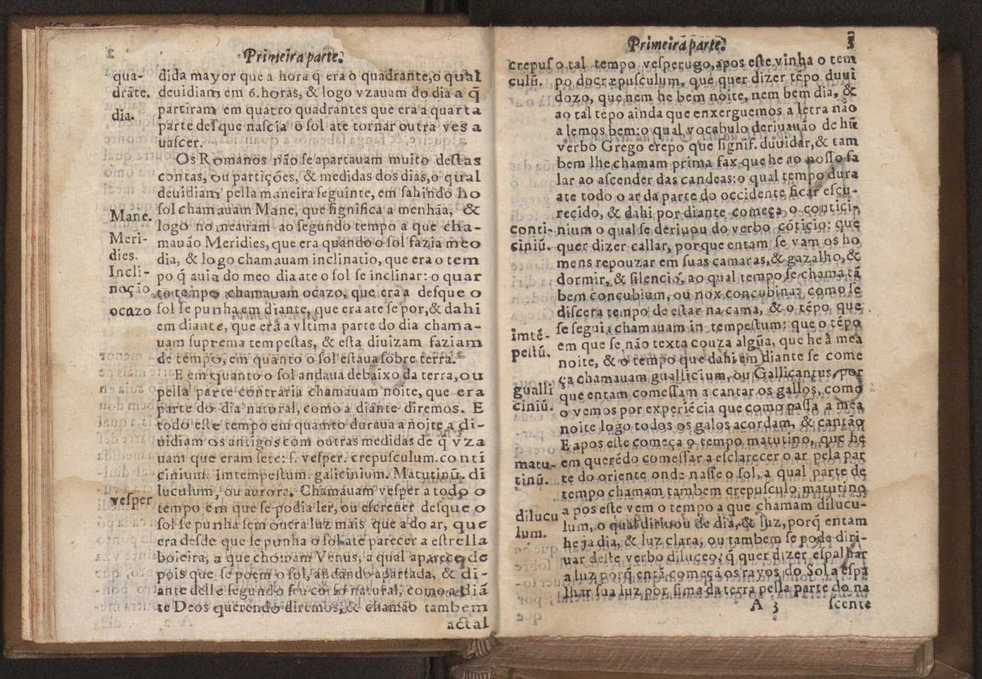 2
Primeira parte.
qua-
drāte.
dia.
dida mayor que a hora q̃ era o quadrante, o qual
deuidiam em 6. horas, & logo vzauam do dia a q̃
partiram em quatro quadrantes que era a quarta
parte desque nascia o sol ate tornar outra ves a
nascer.
Os Romanos não se apartauam muito destas
contas, ou partições, & medidas dos dias, o qual
deuidiam pella maneira seguinte, em sahindo ho
Mane.
sol chamauam Mane, que significa a menhãa, &
logo nomeauam ao segundo tempo a que cha-
Meri-
dies.
mauão Meridies, que era quando o sol fazia meo
dia, & logo chamauam inclinatio, que era o tem
Incli-
nação
po q̃ auia do meo dia ate o sol se inclinar: o quar
to tempo chamauam ocazo, que era a desque o
ocazo
sol se punha em diante, que era ate se por, & dahi
em diante, que era a vltima parte do dia chama-
uam suprema tempestas, & esta diuizam faziam
de tempo, em quanto o sol estaua sobre terra.
E em quanto o sol andaua debaixo da terra, ou
pella parte contraria chamauam noite, que era
parte do dia natural, como a diante diremos. E
todo este tempo em quamto duraua a noite a di-
uidiam os antigos com outras medidas de q̃ vza
uam que eram sete: s. vesper. crepusculum. conti
cinium. imtempestum. galicinium. Matutinũ. di
luculum, ou aurora. Chamauam vesper a todo o
vesper
tempo em que se podia ler, ou escreuer desque o
sol se punha sem outra luz mais que a do ar, que
era desde que se punha o sol ate parecer a estrella
boieira, a que chomam Venus, a qual aparece de
pois que se poem o sol, andando apartada, & di-
ante delle segundo seu corso natural, como a diã
te Deos querendo diremos, & chamão tambem
actal
Primeira parte.
3
crepus
culũ.
o tal tempo vesperugo, apos este vinha o tem
po do crepusculum, que quer dizer tẽpo duui
dozo, que nem he bem noite, nem bem dia, &
ao tal tẽpo ainda que enxerguemos a letra não
a lemos bem: o qual vocabulo deriuauão de hũ
verbo Grego crepo que signif. duuidar, & tam
bem lhe chamam prima fax que he ao nosso fa
lar ao ascender das candeas: o qual tempo dura
ate todo o ar da parte do occidente ficar escu-
recido, & dahi por diante começa o conticĩ-
conti-
ciniũ.
nium o qual se deriuou do verbo coticio: que
quer dizer callar, porque entam se vam os ho
mens repouzar em suas camaras, & gazalho, &
dormir, & silencio, ao qual tempo se chama tã
bem concubium, ou nox concubina: como se
discera tempo de estar na cama, & o tẽpo que
imtē-
pestũ.
se seguia chamauam in tempestum: que o tẽpo
em que se não texta couza algũa, que he à mea
noite, & o tempo que dahi em diante se come
gualli
ciniũ.
ça chamauam guallicium, ou Gallicantus, por
que entam comessam a cantar os gallos, como
o vemos por experiẽcia que como passa a mea
noite logo todos os gallos acordam, & cantão
E apos este começa o tempo matutino, que he
matu-
tinũ.
em querẽdo comessar a esclarecer o ar pela par
te do oriente onde nasse o sol, a qual parte de
tempo chamam tambem crepusculo matutino
dilucu
lum.
a pos este vem o tempo a que chamam dilucu-
lum, o qual diriuou de dia, & luz, porq̃ entam
he ja dia, & luz clara, ou tambem se pode diri-
uar deste verbo diluceo: q̃ quer dizer espalhar
a luz porq̃ entã começã os rayos do Sol a espa
lhar sua luz por sima da terra pella parte do na
A 3
scente